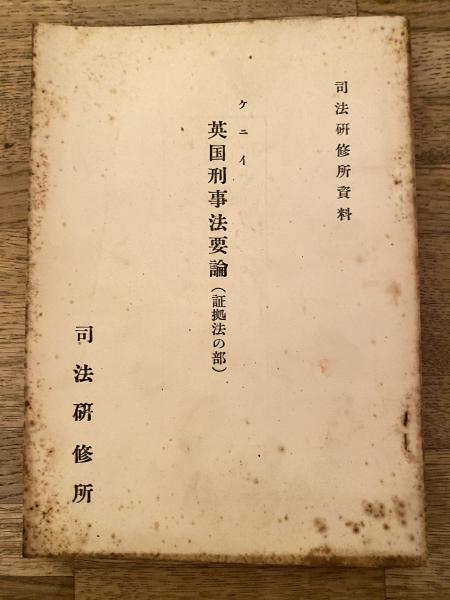 司法研修所資料
ケニイ
英国刑事法要論(証拠法の部)
司法研修所